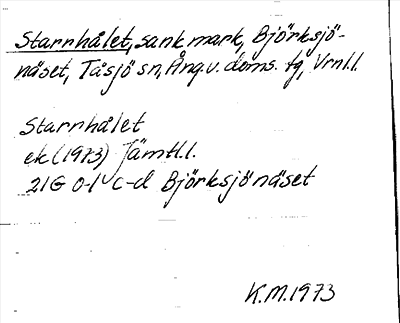 Starrhålet, sank mark, Björksjö-
näset, Tåsjö sn, Ång.v. doms. tg, Vrnl.l.
Starrhålet
ek (1973) Jämtl.l.
21G 0-1 c-d Björksjönäset
K.M. 1973